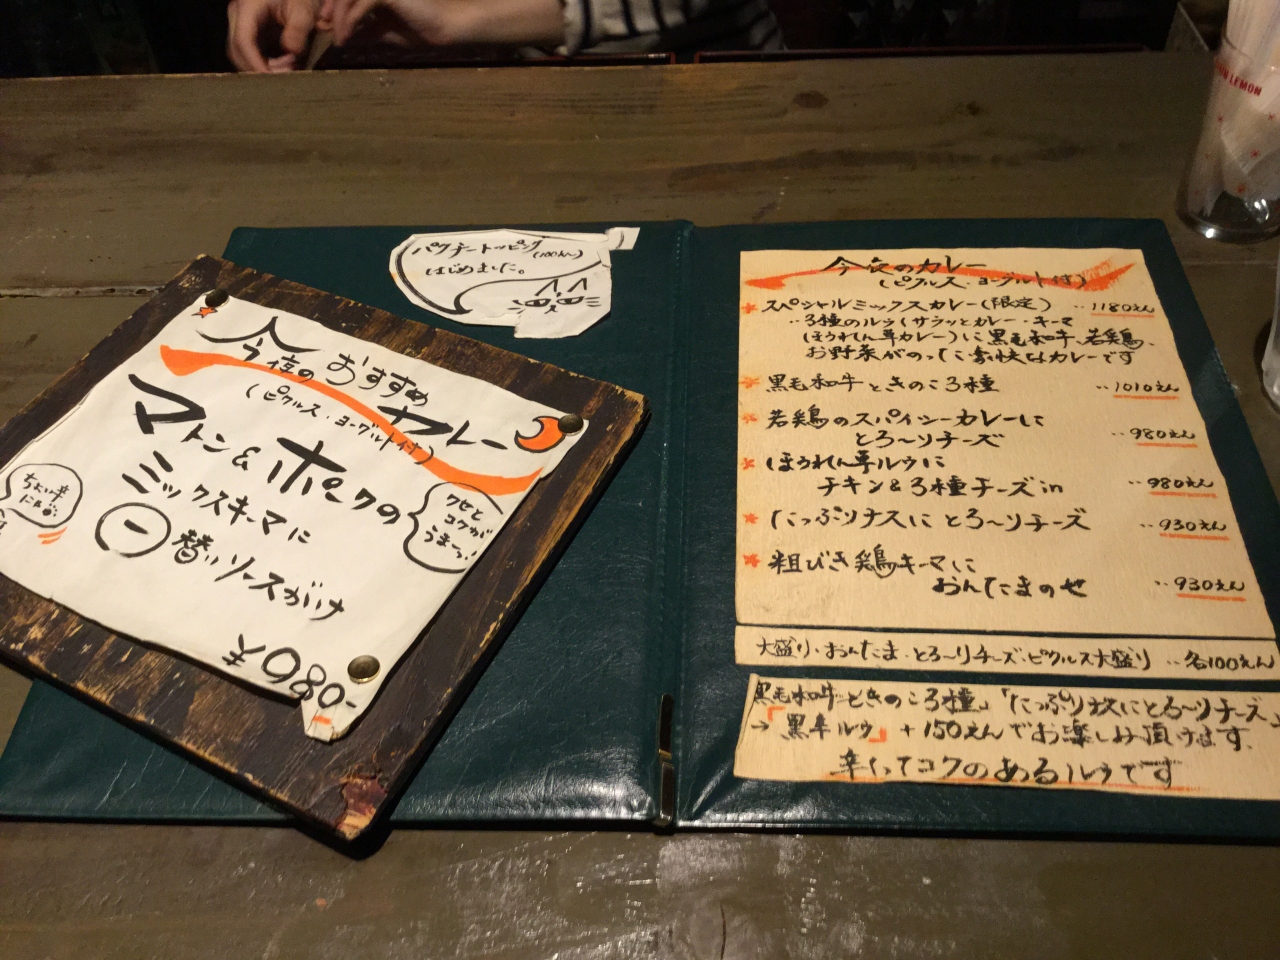 パクチートッピング(100えん)
はじめました。
今夜のおすすめ
カレー
(ピクルス・ヨーグルト付)
マトン&ポークの
ミックスキーマに
替りソースがけ
ちょい辛
クセと
コクが
うまーっ!
¥980-
今夜のカレー
(ピクルス・ヨーグルト付)
スペシャルミックスカレー(限定) ‥1180えん
‥3種のルウ(サラッとカレー・キーマ
ほうれん草カレー)に黒毛和牛、若鶏、
お野菜がのった豪快なカレーです
黒毛和牛ときのこ3種 ‥1010えん
若鶏のスパイシーカレーに
とろ〜りチーズ ‥980えん
ほうれん草ルウに
チキン&3種チーズin ‥980えん
たっぷりナスにとろ〜りチーズ ‥930えん
粗びき鶏キーマに
おんたまのせ ‥930えん
大盛り・おんたま・とろ〜りチーズ・ピクルス大盛り ‥各100えん
黒毛和牛ときのこ3種」「たっぷりナスにとろ〜りチーズ」
→「黒辛ルウ」+150えんでお楽しみ頂けます。
辛くってコクのあるルウです
LEMON